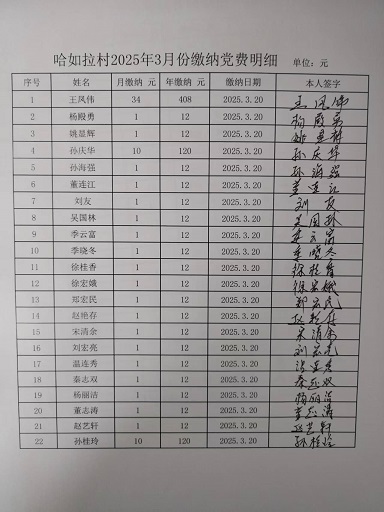 哈如拉村2025年3月份缴纳党费明细 单位：元
序号 姓名 月缴纳 元 年缴纳 元 缴纳日期 本人签字
1 王凤伟 34 408 2025.3.20 王凤伟
2 杨殿勇 1 12 2025.3.20 杨殿勇
3 姚显辉 1 12 2025.3.20 姚显辉
4 孙庆华 10 120 2025.3.20 孙庆华
5 孙海强 1 12 2025.3.20 孙海强
6 董连江 1 12 2025.3.20 董连江
7 刘友 1 12 2025.3.20 刘友
8 吴国林 1 12 2025.3.20 吴国林
9 季云富 1 12 2025.3.20 季云富
10 季晓冬 1 12 2025.3.20 季晓冬
11 徐桂香 1 12 2025.3.20 徐桂香
12 徐宏娥 1 12 2025.3.20 徐宏娥
13 郑宏民 1 12 2025.3.20 郑宏民
14 赵艳存 1 12 2025.3.20
15 宋清余 1 12 2025.3.20 宋清余
16 刘宏亮 1 12 2025.3.20 刘宏亮
17 温连秀 1 12 2025.3.20
18 秦志双 1 12 2025.3.20 秦志双
19 杨丽洁 1 12 2025.3.20 杨丽洁
20 董志涛 1 12 2025.3.20 董志涛
21 赵艺轩 1 12 2025.3.20 赵艺轩
22 孙桂玲 10 120 2025.3.20 孙桂玲